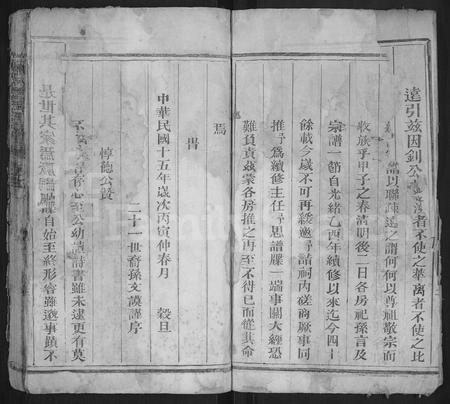 遠引茲因釗公
者不使之華離者不使之比
請以聯疎遠之謂何何以尊祖敬宗而
收族乎甲子之春清明後二日各房祀孫言及
宗譜
自光緒
四年續修以來迄今四十
餘載
歲不可再緩邀予
請祠內磋商厥事同
推予為續修主任予思譜牒一端事關大經恐
難負責茲業各房推之再至不得已而從其命
焉
旹
中華民國十五年歲次丙寅仲春月
穀旦
二十一世裔孫文謨謹序
惇德公贊
公幼讀詩書雖未逮更有莫
是世其家
自始至終形容雖遜事蹟不